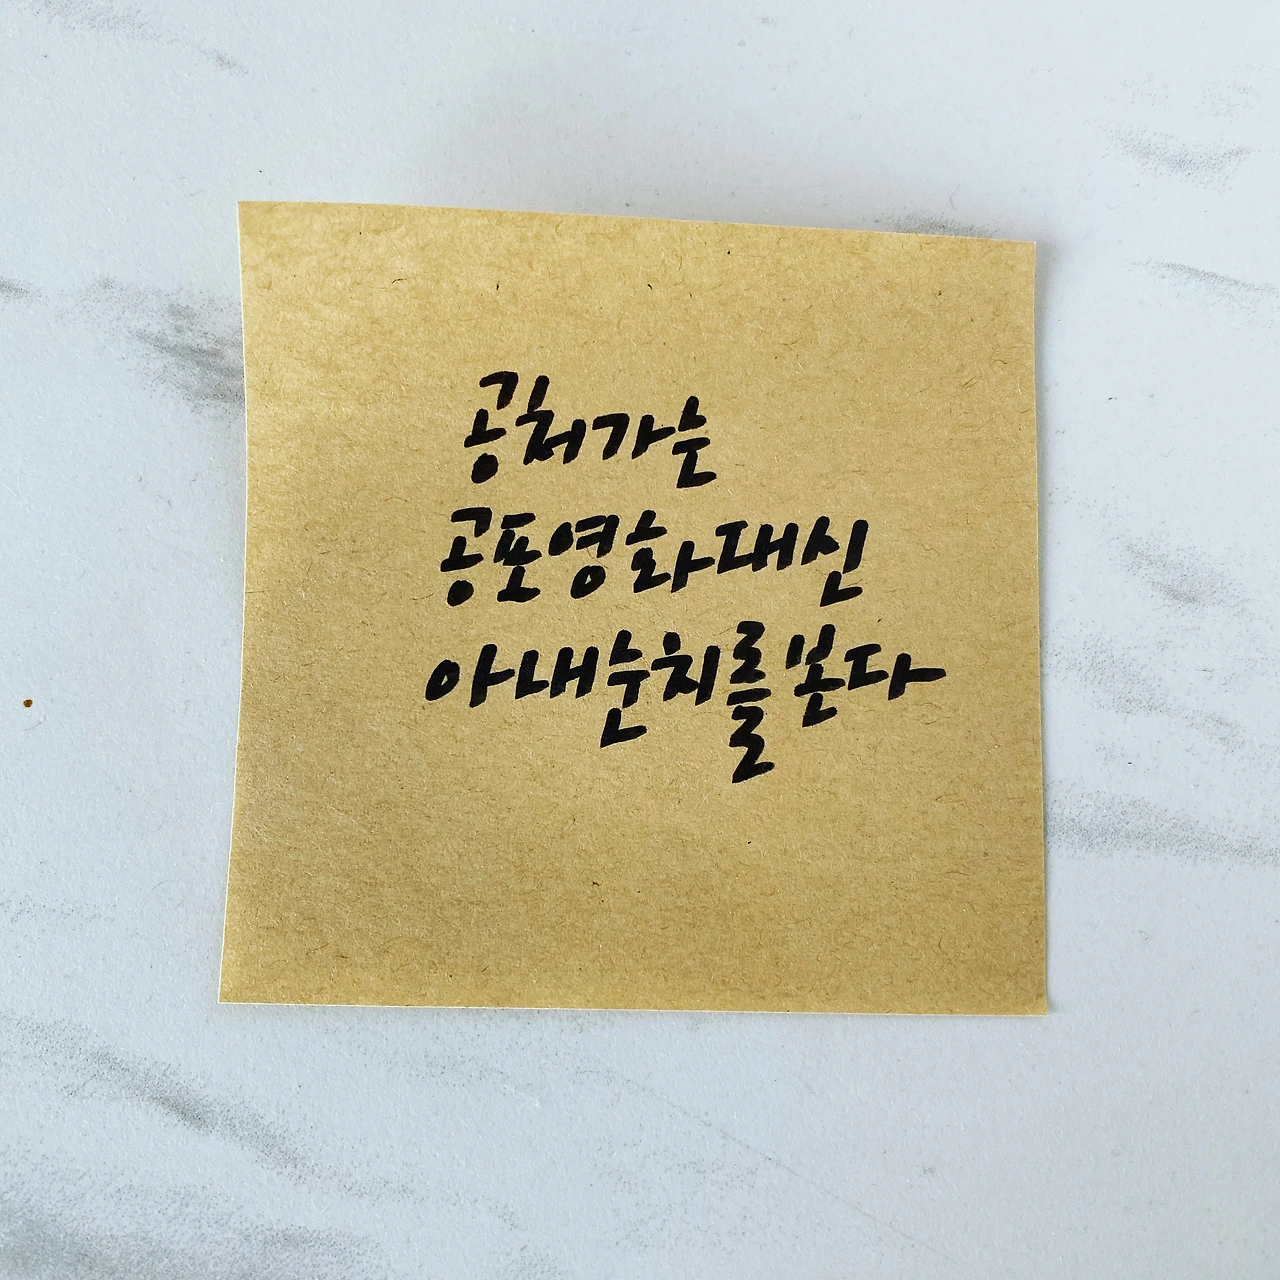 공처가는
공포영화대신
아내눈치를본다